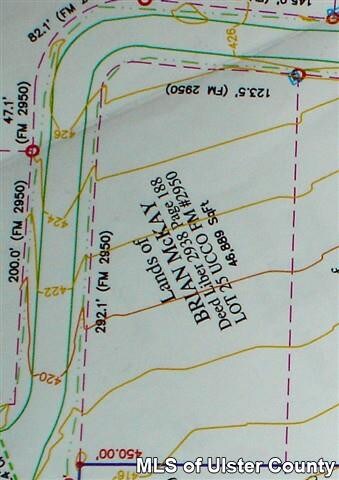 82.1' (FM
145.0' (FM
426
47.1'
(FM 2950)
123.5' (FM 2950)
426
200.0' (FM 2950)
424
Lands of
BRIAN McKAY
Deed Liber 2938 Page 188
LOT 25 UCCO FM #2950
46,889 Sqft
292.1' (FM 2950)
422
420
450.00'
416
MLS of Ulster County